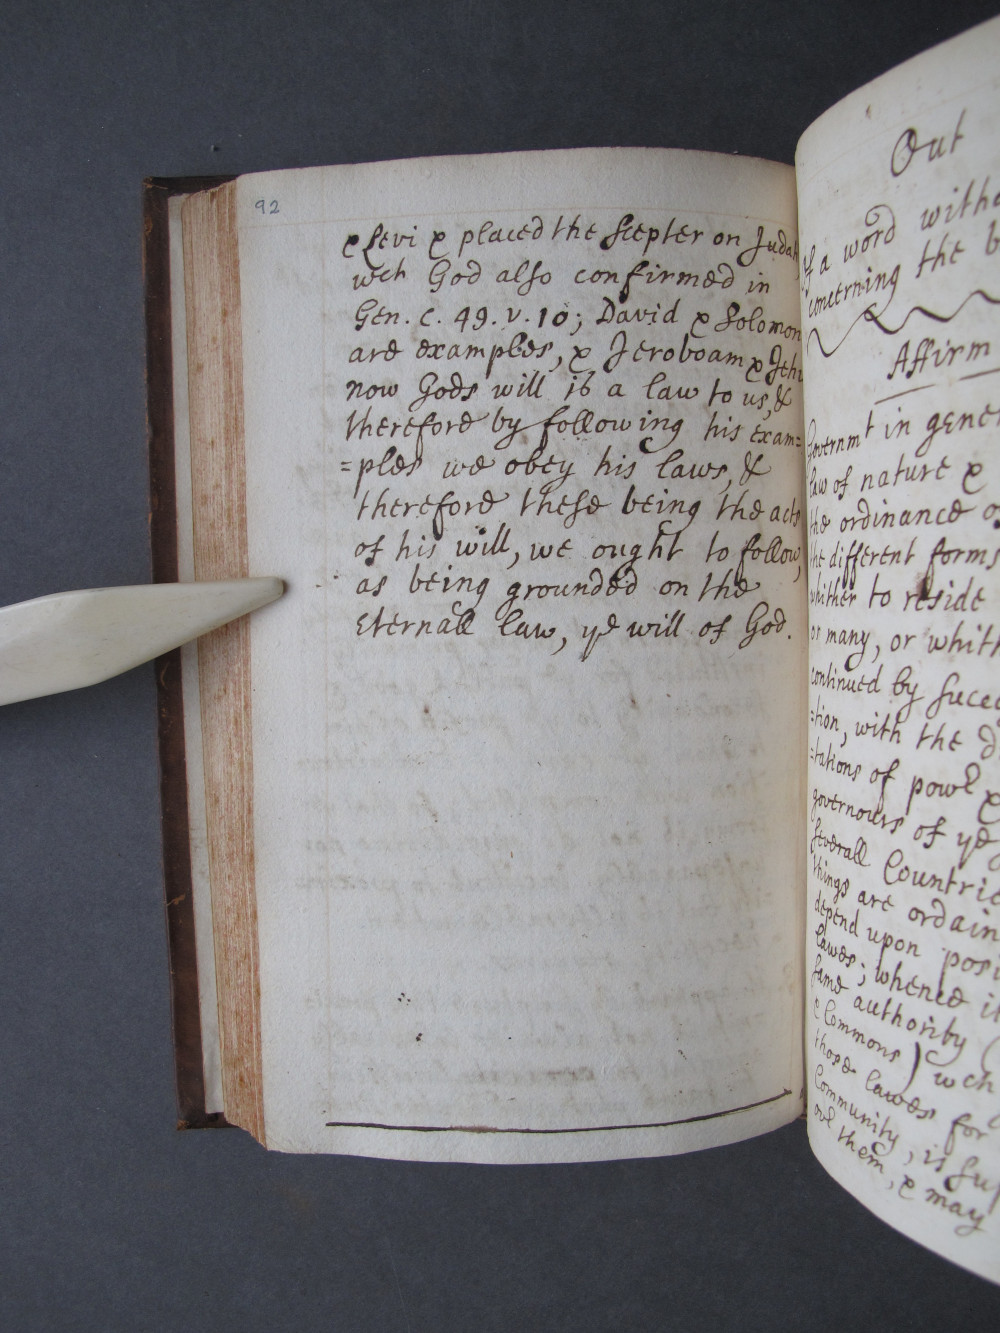 92
& Levi & placed the Scepter on Judah
wch God also confirmed in
Gen. c. 49. v. 10; David & Solomon
are examples, & Jeroboam & Jehu
now Gods will is a law to us, &
therefore by following his exam=
=ples we obey his laws, &
therefore these being the acts
of his will, we ought to follow,
as being grounded on the
Eternall law, ye will of God.
Out
If a word witho
concerning the b
Affirm
Governmt in gener
law of nature &
the ordinance o
the different forms
whither to reside
or many, or whith
continued by succe
=tion, with the d
=tations of powr &
governours of ye
severall Countrie
things are ordain
depend upon posi
Lawes; whence it
same authority (
& Commons) wch
those Lawes for
Community, is su
our them, & may